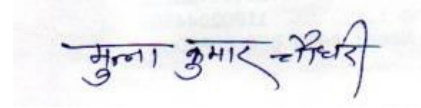 मुन्ना कुमार चौधरी